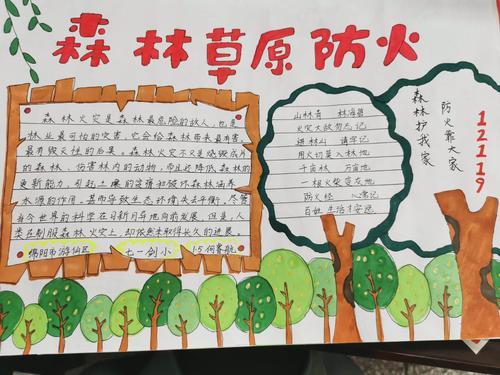 森林草原防火
森林火灾是森林最危险的敌人,也是
林业最可怕的灾害,它会给森林带来最有害,
最有毁灭性的后果。森林火灾不只是烧毁成片
的森林,伤害林内的动物,而且还降低森林的
更新能力,引起土壤的贫瘠和破坏森林涵养
水源的作用,甚而导致生态环境失去平衡,尽管
当今世界的科学在日新月异地向前发展,但是,人
类在制服森林火灾上,却依然未取得长久的进展。
绵阳市游仙区
七一剑小
山林青 林海县
火灾大敌勿忘记
进林山 请牢记
用火切莫入林地
千亩林 万亩地
一根火柴变灰地
防火经 心常记
百姓生活才安逸
森林护我家
防火靠大家
12119